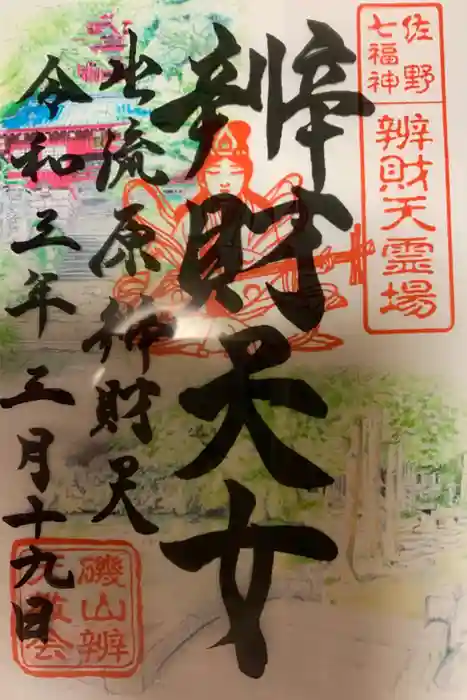 佐野
七福神
辨財天霊場
辨財天女
出流原辨財天
令和三年三月十九日
磯山辨
天 会